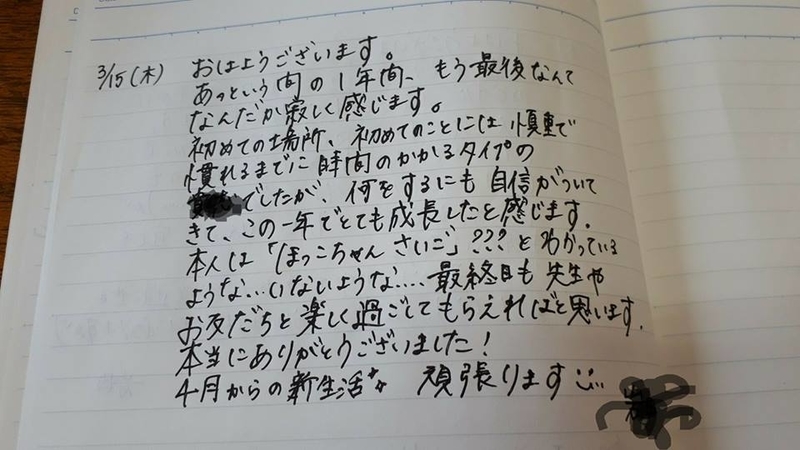 3/15(木) おはようございます。
あっという間の1年間、もう最後なんて
なんだか寂しく感じます。
初めての場所、初めてのことには慎重で
慣れるまでに時間のかかるタイプの
でしたが、何をするにも自信がついて
きて、この一年でとても成長したと感じます。
本人は「ほっこちゃん さいご」???とわかっている
ような…いないような…。最終日も先生や
お友だちと楽しく過ごしてもらえればと思います。
本当にありがとうございました!
4月からの新生活 頑張ります